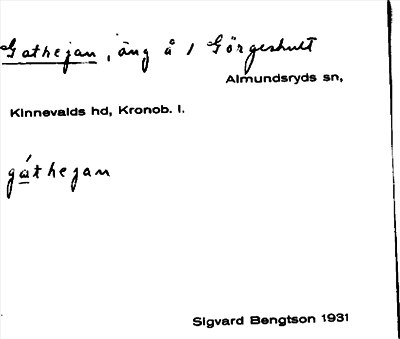 Gathejan, äng å 1 Görgeshult
Almundsryds sn,
Kinnevalds hd, Kronob. l.
gáthejan
Sigvard Bengtson 1931